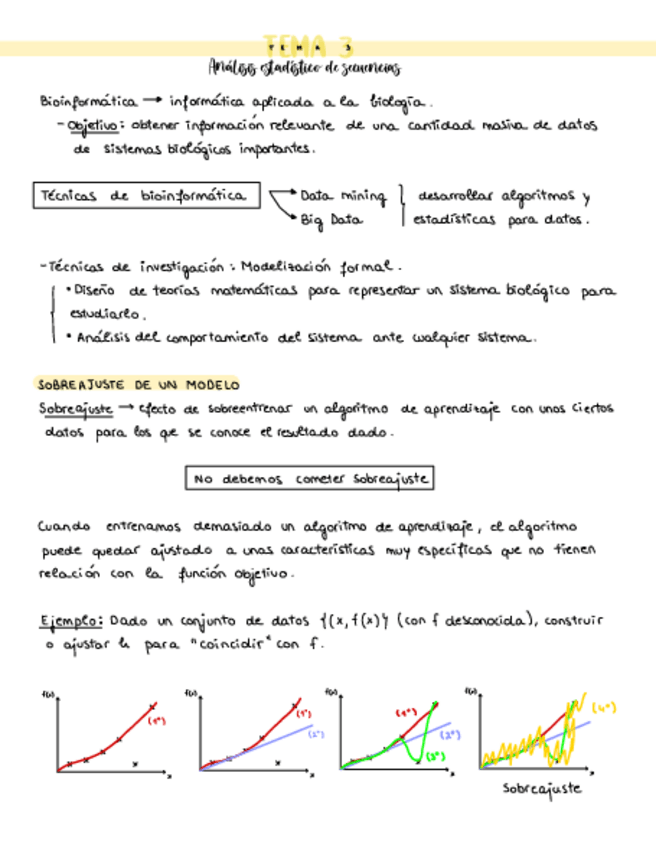 TEMA 3
Análisis estadístico de secuencias
Bioinformática → informática aplicada a la biología.
- Objetivo: obtener información relevante de una cantidad masiva de datos
de sistemas biológicos importantes.
Técnicas de bioinformática
Data mining
Big Data
desarrollar algoritmos y
estadísticas para datos.
- Técnicas de investigación: Modelización formal.
• Diseño de teorías matemáticas para representar un sistema biológico para
estudiarlo.
• Análisis del comportamiento del sistema ante cualquier sistema.
SOBREAJUSTE DE UN MODELO
Sobreajuste → efecto de sobreentrenar un algoritmo de aprendizaje con unos ciertos
datos para los qe se conoce el resultado dado.
No debemos cometer sobreajuste
Cuando entrenamos demasiado un algoritmo de aprendizaje, el algoritmo
puede quedar ajustado a unas características muy específicas que no tienen
relación con la función objetivo.
Ejemplo: Dado un conjunto de datos {(x, f(x)} (con f desconocida), construir
o ajustar h para "coincidir" con f.
f(x) (1º) x
f(x) (1º) (2º) x
f(x) (1º) (2º) (3º) x
f(x) (4º) x
Sobreajuste